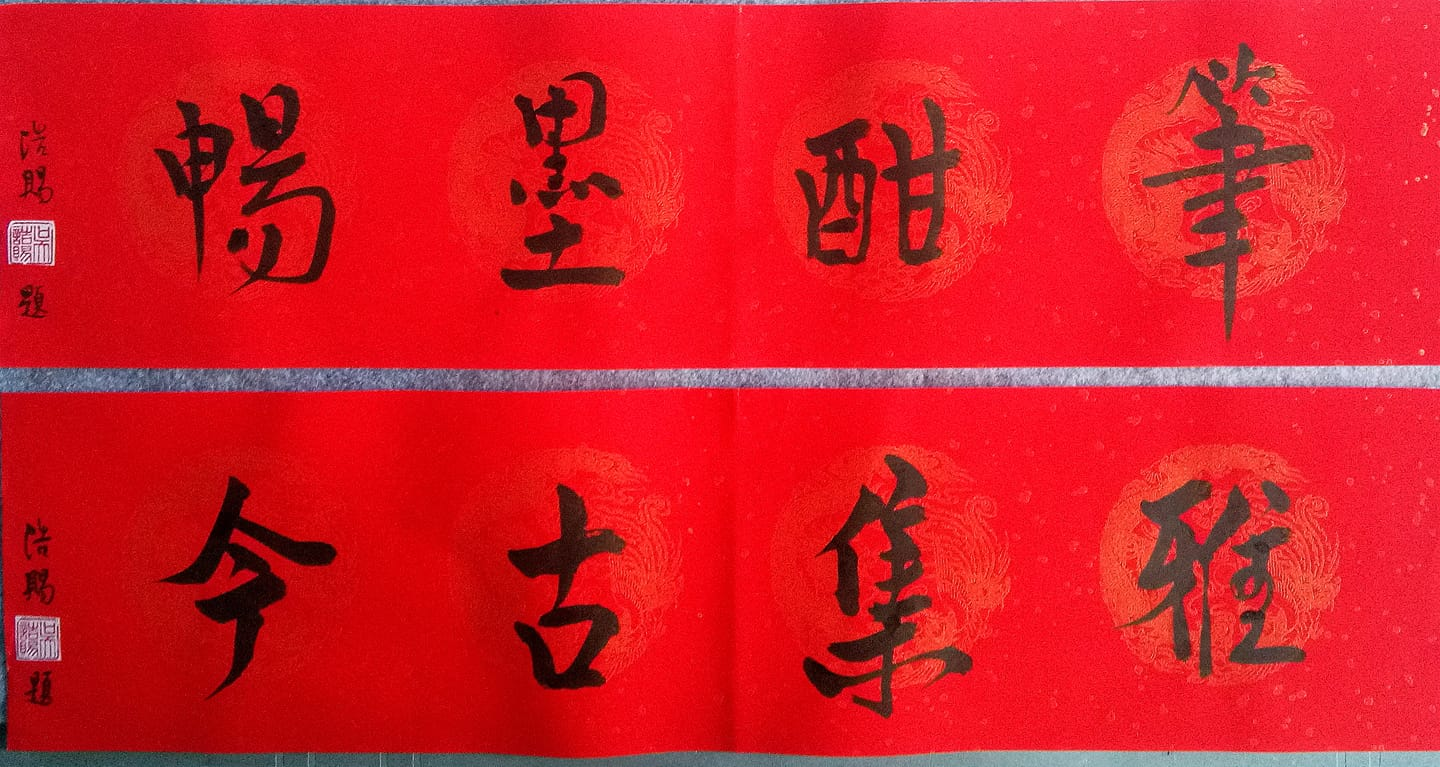 筆酣墨暢
浩賜
題
雅集古今
浩賜
題